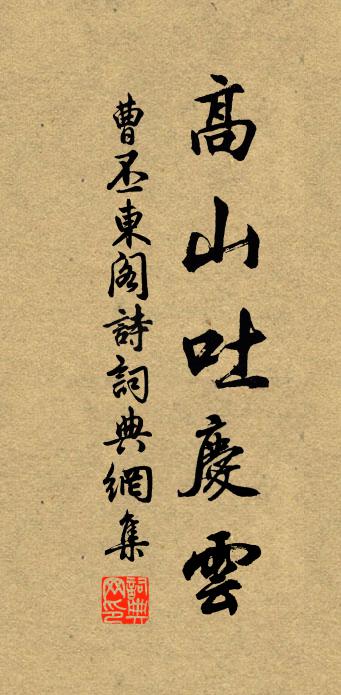 高山吐慶雲
曹丕東閣詩詞典網集
詞典
网印